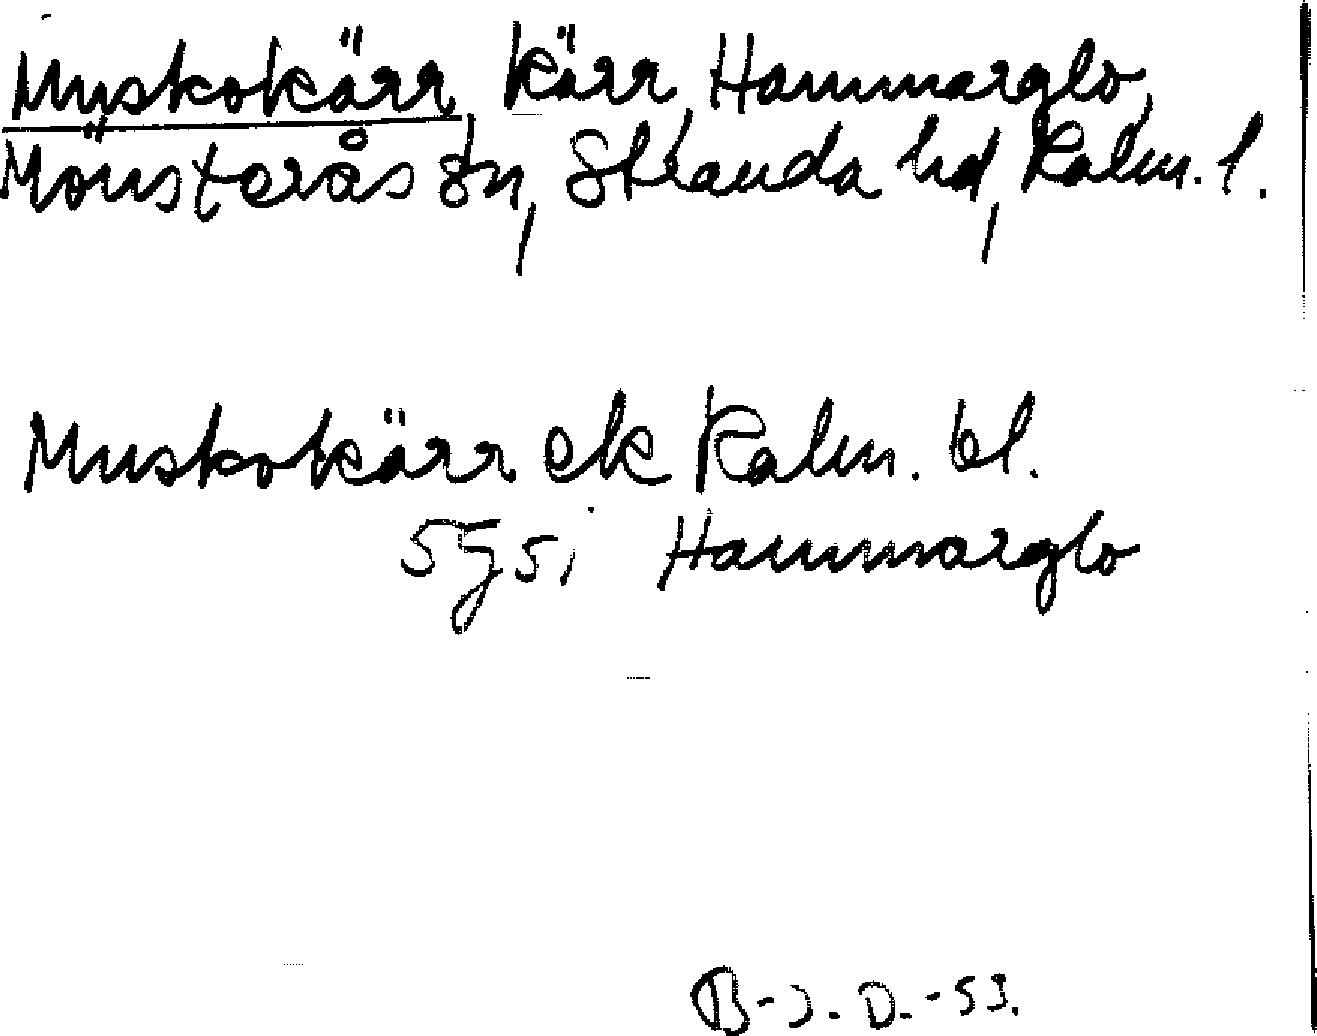 Muskokärr, kärr, Hammarglo,
Mönsterås sn, Stranda hd, Kalm. l.
Muskokärr ek Kalm. bl.
5g5i Hammarglo
B-J.D.-53.